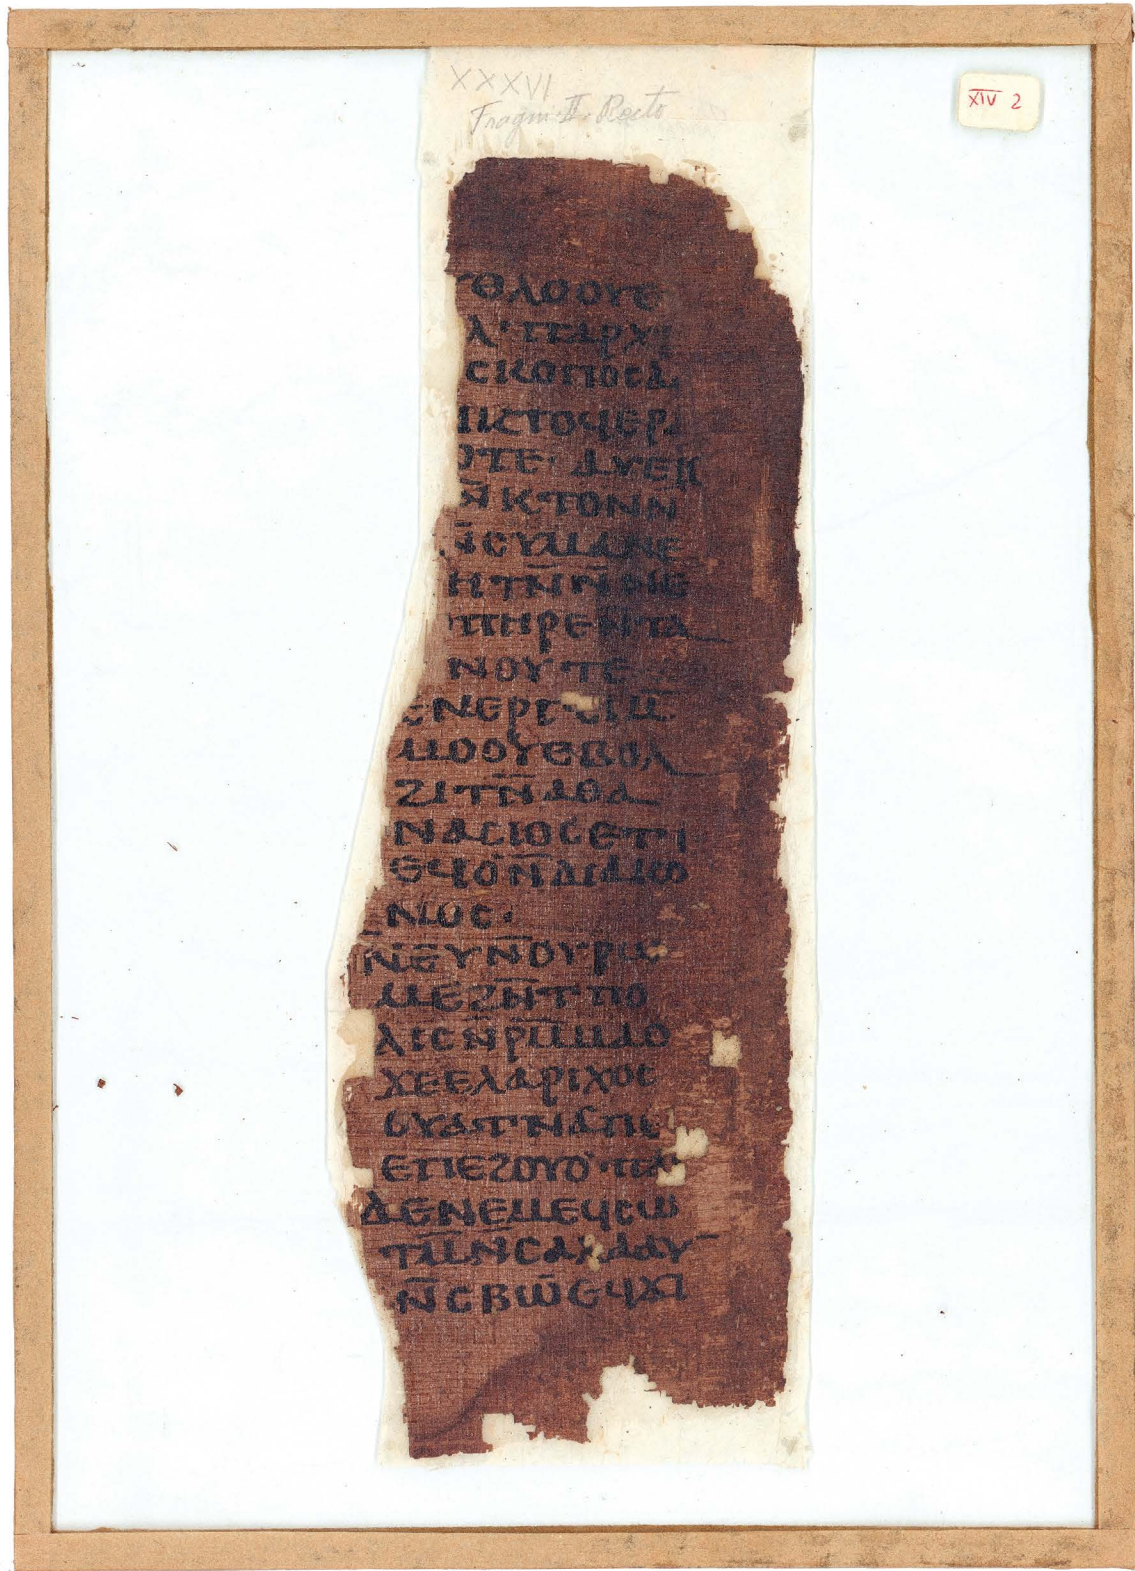 XXXVI
Fragm. II. Recto
XIV 2
ⲑⲗⲟⲟⲩⲉ
ⲁ· ⲡⲁⲣⲭⲓ
ⲥⲕⲟⲡⲟⲥⲁ
ⲡⲓⲥⲧⲟϥⲉⲣ
ⲟⲧⲉ· ⲁⲩⲉⲓ
ⲛ̄ⲕⲧⲟⲛⲛ
ⲛ̄ⲥⲩⲙⲁⲛⲉ
ⲏⲧⲛ̄ⲛ̄ϭⲓⲉ
ⲡⲏⲣⲉⲛⲧⲁ
ⲛⲟⲩⲧⲉ
ⲉⲛⲉⲣⲅⲉⲓⲙ̄
ⲙⲟⲟⲩⲉⲃⲟⲗ
ϩⲓⲧⲛ̄ⲁⲑⲁ
ⲛⲁⲥⲓⲟⲥⲉⲧⲓ
ⲉϥⲟⲛ̄ⲇⲓⲁⲕⲱ
ⲛⲓⲟⲥ·
ⲛⲉⲩⲛ̄ⲟⲩⲣⲱ
ⲙⲉϩⲛ̄ⲧⲡⲟ
ⲗⲓⲥⲛ̄ⲣⲙ̄ⲙⲁⲟ
ϫⲉⲉⲗⲁⲣⲓⲭⲟⲥ
ⲟⲩⲁⲧⲛⲁⲡⲉ
ⲉⲡⲉϩⲟⲩⲟ· ⲡⲁⲓ
ⲇⲉⲛⲉⲙⲉϥⲥⲱ
ⲧⲙ̄ⲛ̄ⲥⲁⲗⲁⲁⲩ
ⲛ̄ⲥⲃⲱ̄ⲉϥϫⲓ